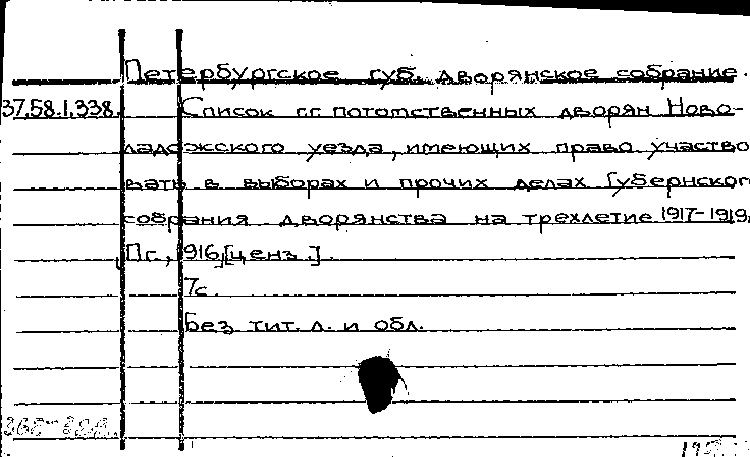 Петербургское губ. дворянское собрание.
37.58.1.338. Список г.г. потомственных дворян Ново-
ладожского уезда, имеющих право участво
вать в выборах и прочих делах Губернског
собрания дворянства на трехлетие 1917-1919.
Пг., 1916, [ценз.].
7с.
Без тит. л. и обл.